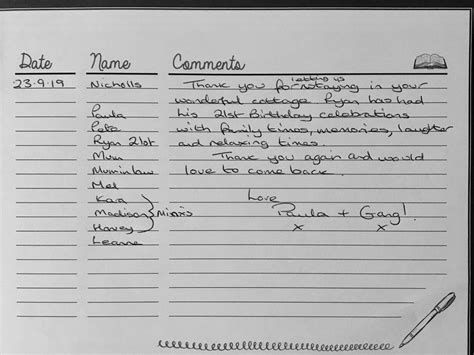 Date Name Comments
23.9.19 Nicholls Thank you for letting us staying in your
wonderful cottage Ryan has had
Paula his 21st Birthday celebrations
Pete with family times, memories, laughter
Ryan 21st and relaxing times.
Mum Thank you again and would
Mum in law love to come back.
Mel
Kara Love
Madison Minxs Paula + Gang!
Harvey x x
Leanne